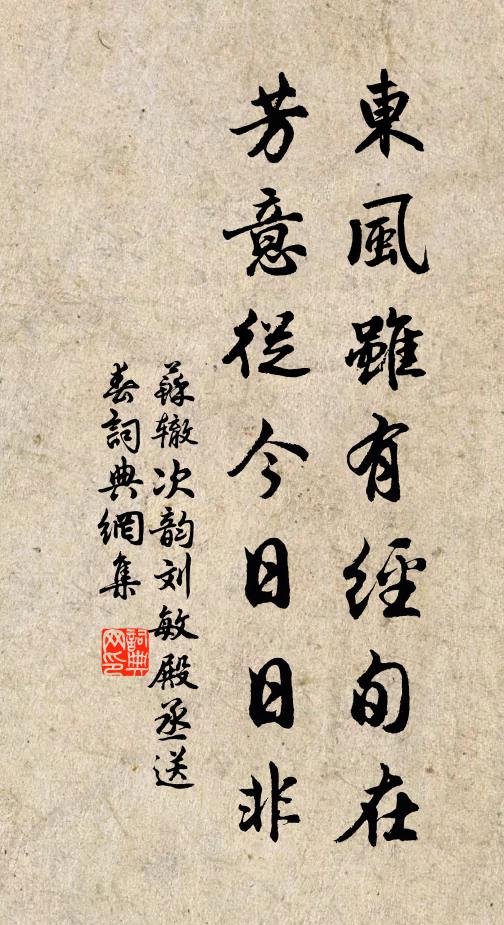 東風雖有經旬在
芳意從今日日非
蘇辙次韵刘敏殿丞送
春詞典網集
詞典
网印